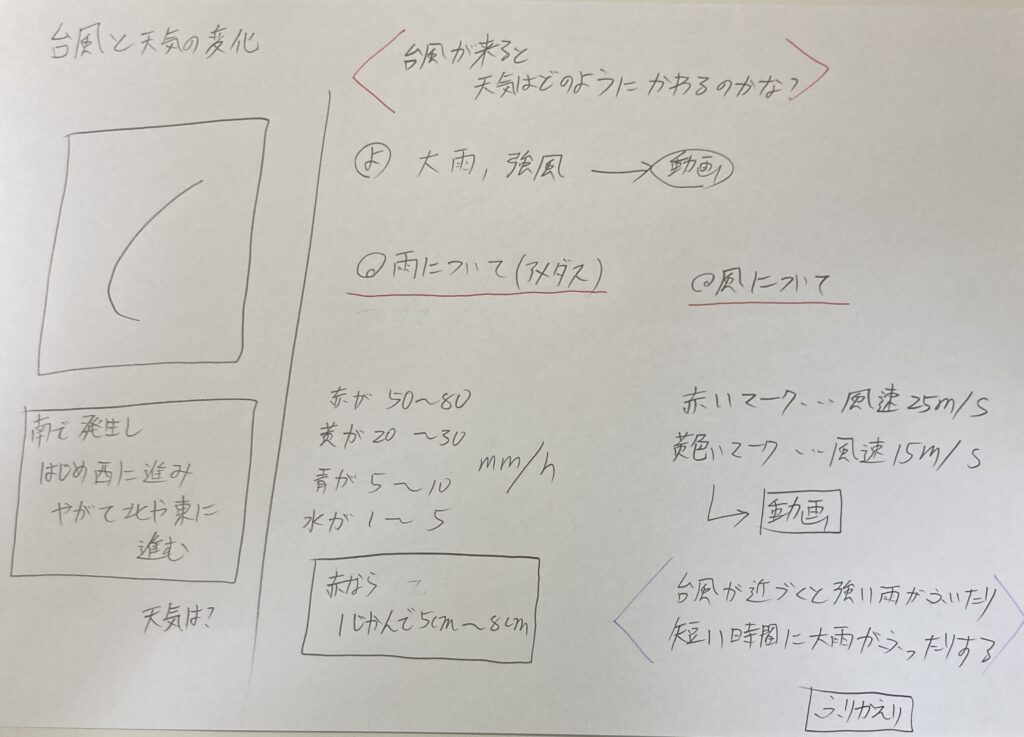 台風と天気の変化
南で発生し
はじめ西に進み
やがて北や東に
進む
天気は?
台風が来ると
天気はどのようにかわるのかな?
よ 大雨,強風 → 動画
◎雨について(アメダス)
赤が 50〜80
黄が 20〜30
青が 5〜10
水が 1〜5
mm/h
赤なら
1じかんで5cm〜8cm
◎風について
赤いマーク…風速25m/s
黄色いマーク…風速15m/s
動画
台風が近づくと強い雨がふいたり
短い時間に大雨がふったりする
ふりかえり